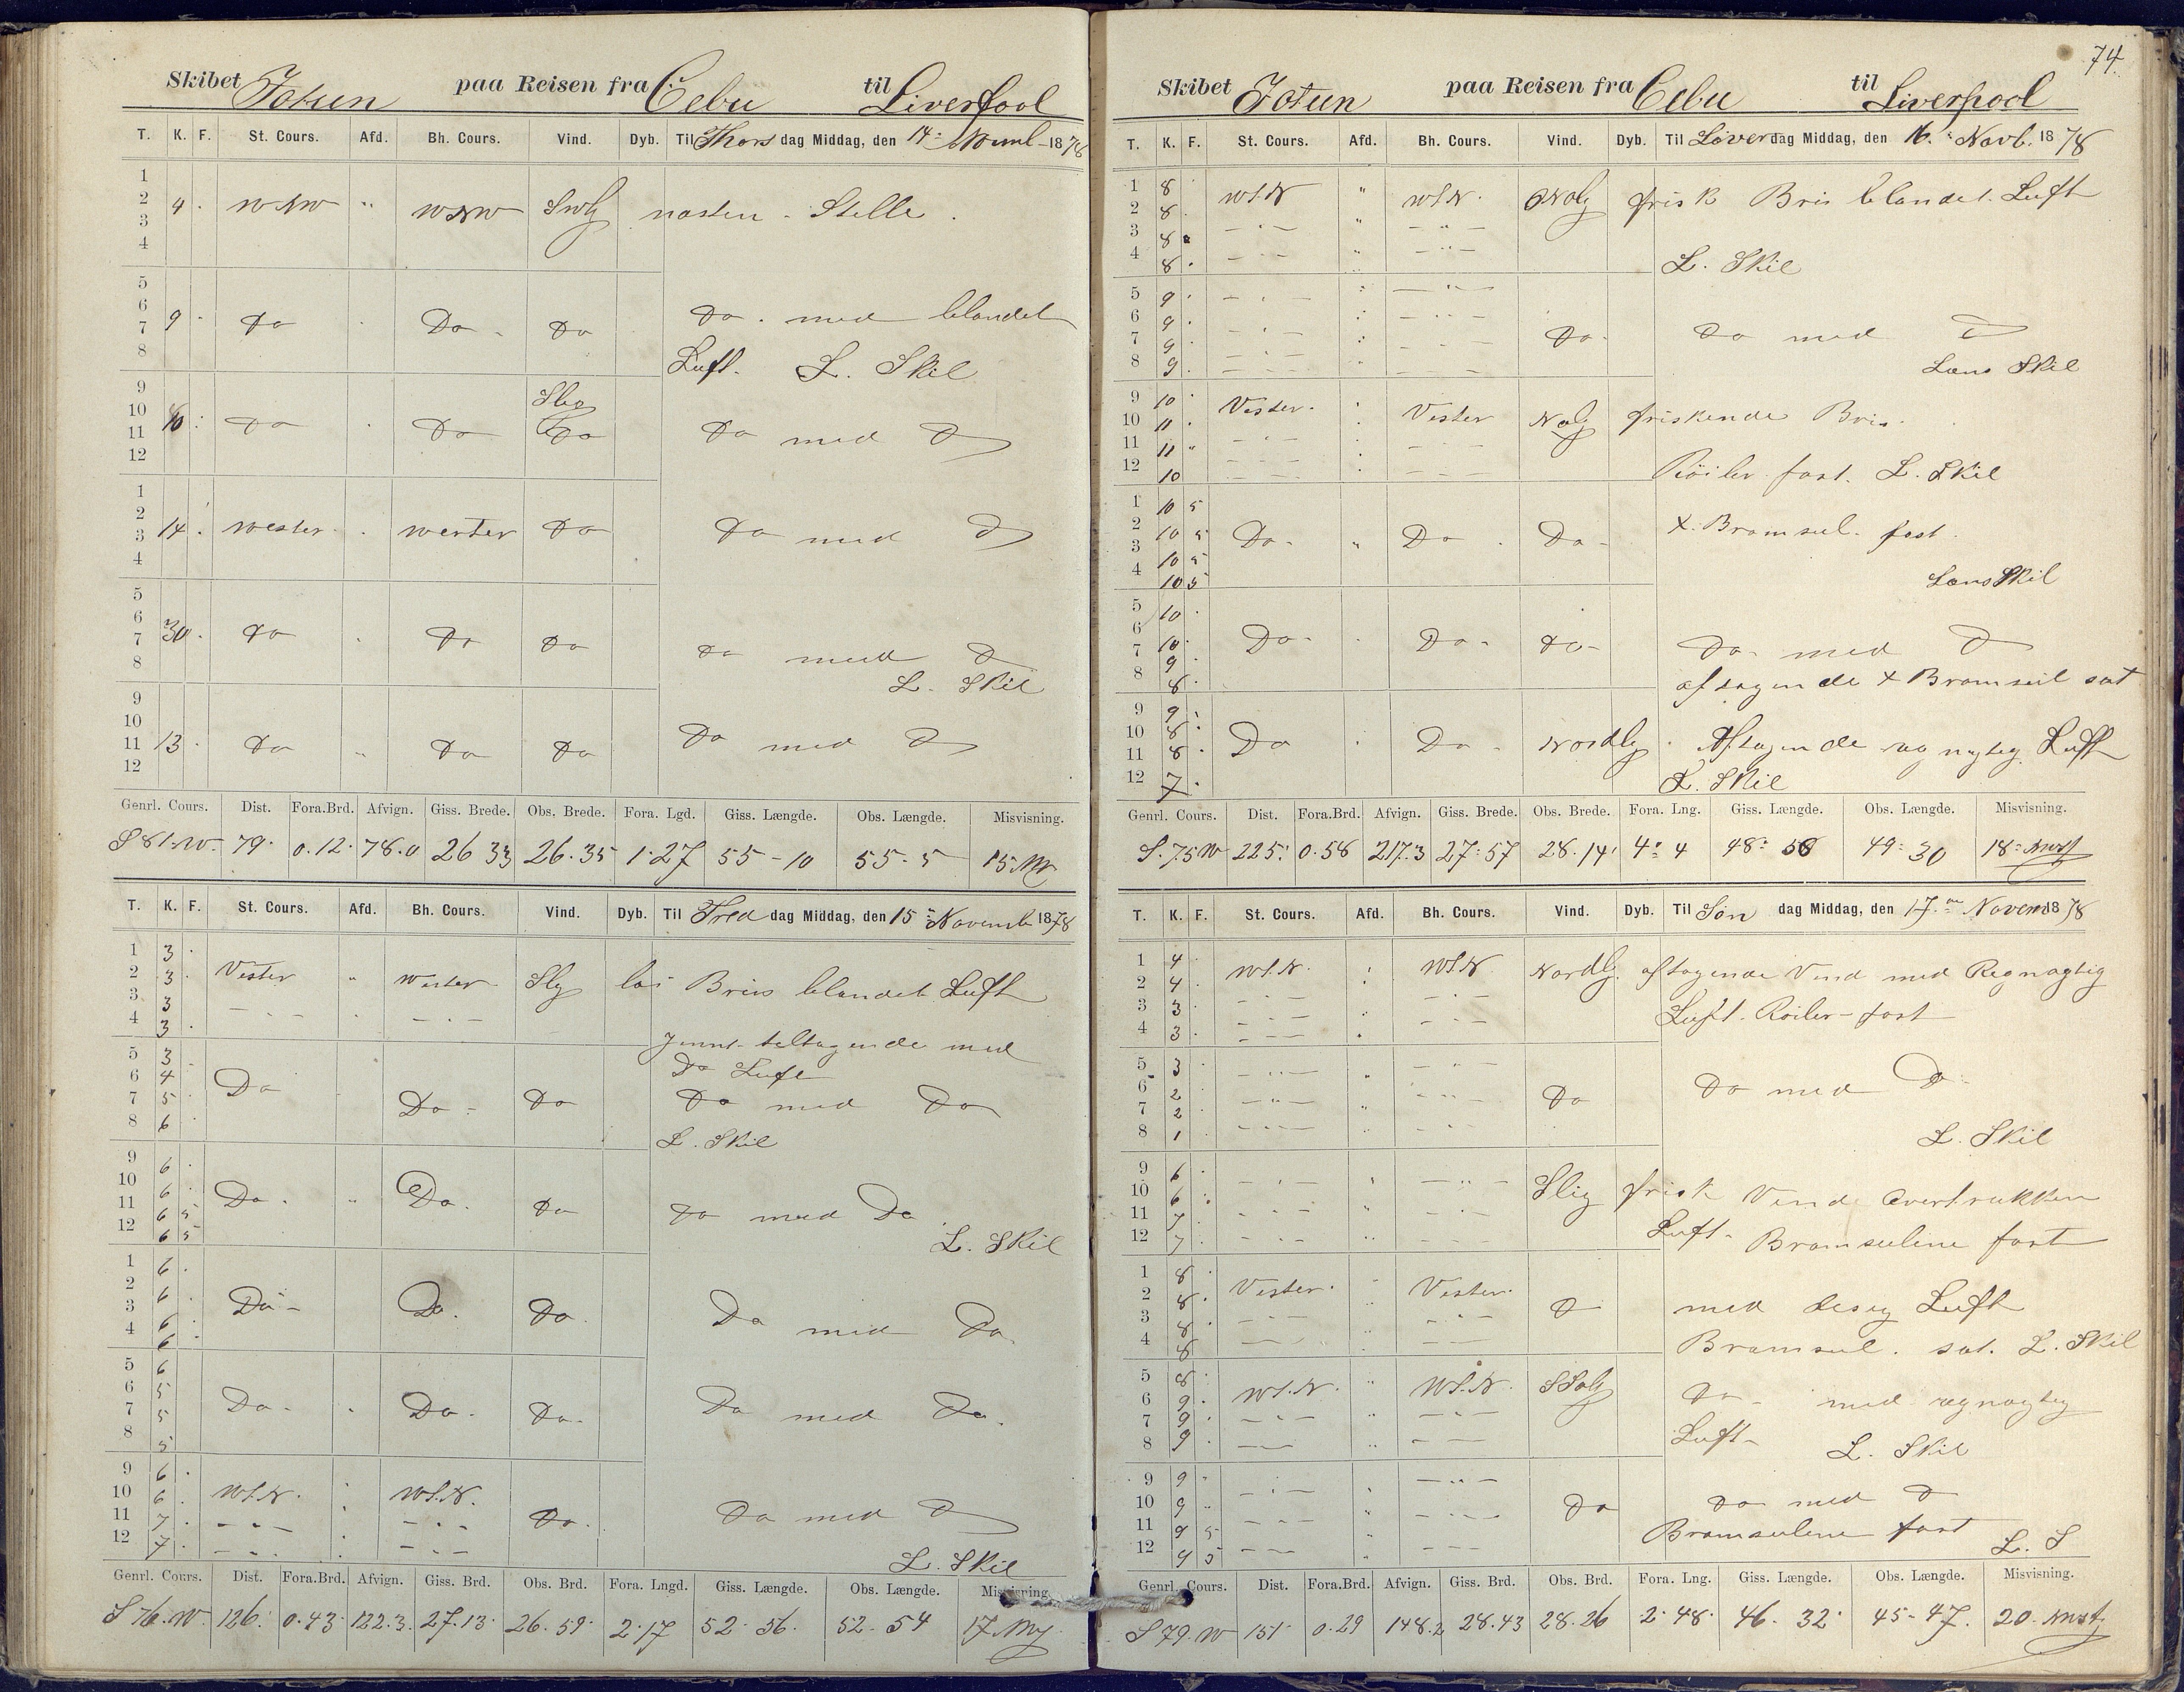 Skibet Jotun paa Reisen fra Cebu til Liverpool
T. K. F. St. Cours. Afd. Bh. Cours. Vind. Dyb. Til Thors dag Middag, den 14 1878
1
2 4 WNW " WNW
3 næsten Stille
4
5
6 Do. med blandet
7 9 Do Do Do
8 Luft. L. Skil
9
10 16 Do Do Do
11 Do med D
12
1
2
3 14 wester wester Do Do med D
4
5
6
7 30 Do Do Do Do med D
8 L. Skil
9
10
11 13 Do " Do Do Do med D
12
Genrl. Cours. Dist. Fora.Brd. Afvign. Giss. Brede. Obs. Brede. Fora. Lgd. Giss. Længde. Obs. Længde. Misvisning.
S 81 W 79 0.12 78.0 26 33 26.35 1.27 55-10 55-5
T. K. F. St. Cours. Afd. Bh. Cours. Vind. Dyb. Til Fred dag Middag, den 15 Novemb 1878
1 3
2 3 Vester " Wester Slg Bris blandet Luft
3 3
4 3 tiltagende med
5 3 Do Luft
6 4 Do
7 5 Do Do Do med Do
8 6 L. Skil
9 6
10 6 Do " Do. Do
11 6 5 Do med Do
12 6 5 L. Skil
1 6
2 6
3 6 Do Do. Do Do med Do.
4 6
5 6
6 5
7 5 Do. Do. Do. Do med Do.
8 5
9 6
10 6 W.t.N. W.t.N.
11 7 Do. Do med D
12 7 L. Skil
Genrl. Cours. Dist. Fora.Brd. Afvign. Giss. Brd. Obs. Brd. Fora. Lngd. Giss. Længde. Obs. Længde. Misvisning.
S 76 W 126 0.43 122.3 27.13 26.59 2.17 52.56 52-54
74.
Skibet Jotun paa Reisen fra Cebu til Liverpool
T. K. F. St. Cours. Afd. Bh. Cours. Vind. Dyb. Til Løver dag Middag, den 16. Novb. 1878
1 8 W.t.N " W.t.N. frisk Bris blandet Luft
2 8
3 8
4 8 L. Skil
5 9
6 9
7 9 Do. Do med D
8 9 Læns Skil
9 10 Vester. Vester friskende Bris.
10 11
11 11
12 10 Røiler fast. L. Skil
1 10 5
2 10 5 Bramseil fast
3 10 5 Do. " Do. Do.
4 10 5 Læns Skil
5 10
6 10 Do. Do. Do. Do. med D
7 9
8 8 aftagende Bramseil sat
9 9
10 8 Do Do Nordlg Aftagende Luft
11 8
12 7 L. Skil
Genrl. Cours. Dist. Fora.Brd. Afvign. Giss. Brede. Obs. Brede. Fora. Lng. Giss. Længde. Obs. Længde. Misvisning.
S. 75 W 225 0.58 217.3 27.57 28.14 4.4 48.58 49.30
T. K. F. St. Cours. Afd. Bh. Cours. Vind. Dyb. Til Søn dag Middag, den 17. Novem 1878
1 4 W.t.N. W.t.N Nordlg. aftagende Vind med Regnagtig
2 4
3 3 Luft. Røiler fast
4 3
5 3
6 2 Do Do med Do
7 2
8 1 L. Skil
9 6
10 6 Slig frisk Vind Overtrukken
11 7
12 7 Luft. Bramseilene fast
1 8 Vester Vester
2 8 D med disig Luft
3 8
4 8 Bramseil. sat. L. Skil
5 8
6 9 W.t.N. " W.t.N. Do med regnagtig
7 9
8 9 Luft L. Skil
9 9
10 9 Do Do med D
11 9 5 Bramseilene fast
12 9 5 L. S
Genrl. Cours. Dist. Fora.Brd. Afvign. Giss. Brd. Obs. Brd. Fora. Lng. Giss. Længde. Obs. Længde. Misvisning.
S 79 W 151 0.29 148.2 28.43 28.26 2.48 46.32 45-47.